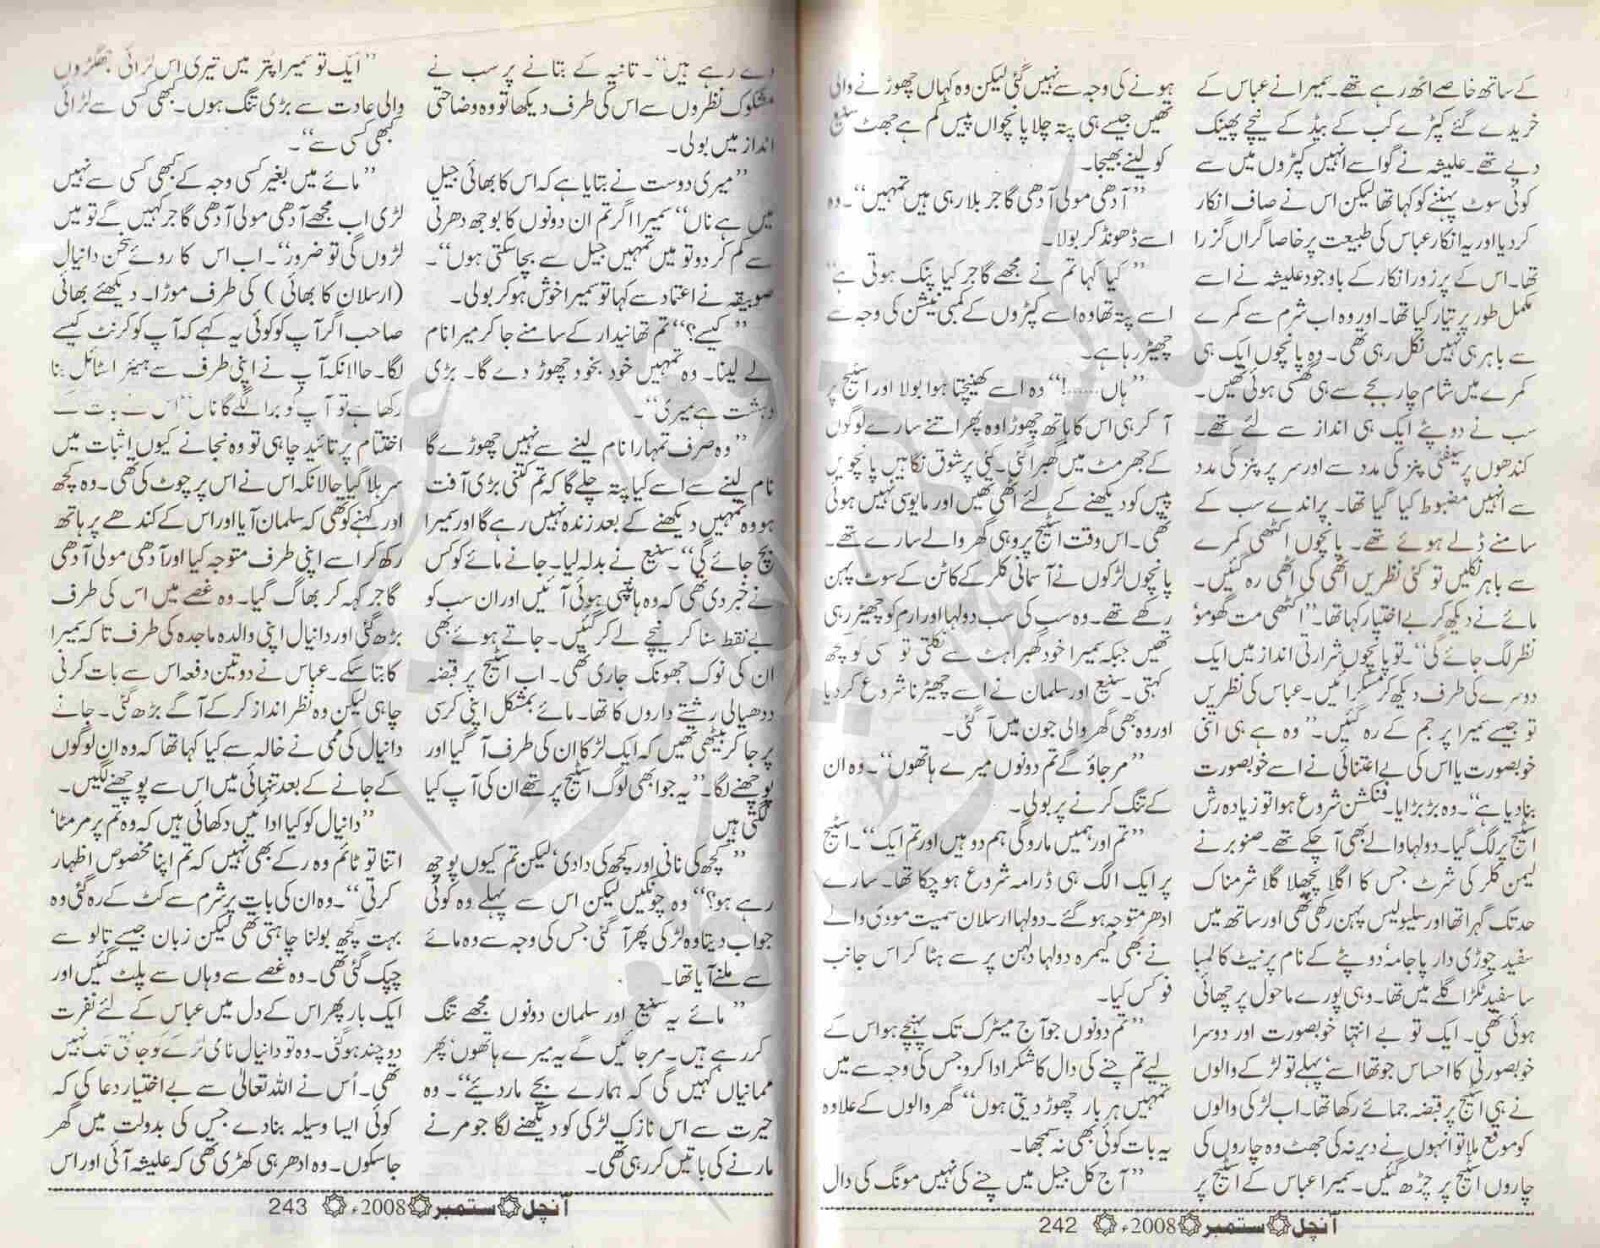 کے ساتھ خاصے اٹھ رہے تھے۔ سمیرا نے عباس کے
خریدے گئے کپڑے کب کے بیڈ کے نیچے پھینک
دیے تھے۔ علیشہ نے گو اسے انہیں کپڑوں میں سے
کوئی سوٹ پہننے کو کہا تھا لیکن اس نے صاف انکار
کر دیا اور یہ انکار عباس کی طبیعت پر خاصا گراں گزرا
تھا۔ اس کے پرزور انکار کے باوجود علیشہ نے اسے
مکمل طور پر تیار کیا تھا۔ اور وہ اب شرم سے کمرے
سے باہر ہی نہیں نکل رہی تھی۔ وہ پانچوں ایک ہی
کمرے میں شام چار بجے سے ہی گھسی ہوئی تھیں۔
سب نے دوپٹے ایک ہی انداز سے لئے تھے۔
کندھوں پر سیفٹی پنز کی مدد سے اور سر پر پنز کی مدد
سے انہیں مضبوط کیا گیا تھا۔ پراندے سب کے
سامنے ڈلے ہوئے تھے۔ پانچوں اکٹھی کمرے
سے باہر نکلیں تو کئی نظریں اٹھی کی اٹھی رہ گئیں۔
مائے نے دیکھ کر بے اختیار کہا تھا۔ ”اکٹھی مت گھومو‘
نظر لگ جائے گی“۔ تو پانچوں شرارتی انداز میں ایک
دوسرے کی طرف دیکھ کر مسکرائیں۔ عباس کی نظریں
تو جیسے سمیرا پر جم کے رہ گئیں۔ ”وہ ہے ہی اتنی
خوبصورت یا اس کی بے اعتنائی نے اسے خوبصورت
بنا دیا ہے“۔ وہ بڑبڑایا۔ فنکشن شروع ہوا تو زیادہ رش
اسٹیج پر لگ گیا۔ دولہا والے بھی آ چکے تھے۔ صنوبر نے
لیمن کلر کی شرٹ جس کا اگلا پچھلا گلا شرمناک
حد تک گہرا تھا اور سلیولیس پہن رکھی تھی اور ساتھ میں
سفید چوڑی دار پاجامہ‘ دوپٹے کے نام پر نیٹ کا لمبا
سا سفید ٹکڑا گلے میں تھا۔ وہی پورے ماحول پر چھائی
ہوئی تھی۔ ایک تو بے انتہا خوبصورت اور دوسرا
خوبصورتی کا احساس جو تھا اسے‘ پہلے تو لڑکے والوں
نے ہی اسٹیج پر قبضہ جمائے رکھا تھا۔ اب لڑکی والوں
کو موقع ملا تو انہوں نے دیر نہ کی جھٹ وہ چاروں کی
چاروں اسٹیج پر چڑھ گئیں۔ سمیرا عباس کے اسٹیج پر
ہونے کی وجہ سے نہیں گئی لیکن وہ کہاں چھوڑنے والی
تھیں جیسے ہی پتہ چلا پانچواں پیس کم ہے جھٹ سنیع
کو لینے بھیجا۔
”آدھی مولی آدھی گاجر بلا رہی ہیں تمہیں“۔ وہ
اسے ڈھونڈ کر بولا۔
”کیا کہا تم نے مجھے گاجر کیا پنک ہوتی ہے“
اسے پتہ تھا وہ اسے کپڑوں کے کمبی نیشن کی وجہ سے
چھیڑ رہا ہے۔
”ہاں......!“ وہ اسے کھینچتا ہوا بولا اور اسٹیج پر
آ کر ہی اس کا ہاتھ چھوڑا وہ پھر اتنے سارے لوگوں
کے جھرمٹ میں گھبرا گئی۔ کئی پرشوق نگاہیں پانچویں
پیس کو دیکھنے کے لئے اٹھی تھیں اور مایوسی نہیں ہوئی
تھی۔ اس وقت اسٹیج پر وہی گھر والے سارے تھے۔
پانچوں لڑکوں نے آسمانی کلر کے کاٹن کے سوٹ پہن
رکھے تھے۔ وہ سب کی سب دولہا اور ارم کو چھیڑ رہی
تھیں جبکہ سمیرا خود گھبراہٹ سے نکلتی تو کسی کو کچھ
کہتی۔ سنیع اور سلمان نے اسے چھیڑنا شروع کر دیا
اور وہ بھی گھر والی جون میں آ گئی۔
”مر جاؤ گے تم دونوں میرے ہاتھوں“۔ وہ ان
کے تنگ کرنے پر بولی۔
”تم اور ہمیں مارو گی ہم دو ہیں اور تم ایک“۔ اسٹیج
پر ایک الگ ہی ڈرامہ شروع ہو چکا تھا۔ سارے
ادھر متوجہ ہو گئے۔ دولہا ارسلان سمیت مووی والے
نے بھی کیمرہ دولہا دلہن پر سے ہٹا کر اس جانب
فوکس کیا۔
”تم دونوں جو آج میٹرک تک پہنچے ہو اس کے
لیے تم چنے کی دال کا شکر ادا کرو جس کی وجہ سے میں
تمہیں ہر بار چھوڑ دیتی ہوں“ گھر والوں کے علاوہ
یہ بات کوئی بھی نہ سمجھا۔
”آج کل جیل میں چنے کی نہیں مونگ کی دال
آنچل ستمبر 2008ء 242
دے رہے ہیں“۔ تانیہ کے بتانے پر سب نے
مشکوک نظروں سے اس کی طرف دیکھا تو وہ وضاحتی
انداز میں بولی۔
”میری دوست نے بتایا ہے کہ اس کا بھائی جیل
میں ہے ناں“ سمیرا اگر تم ان دونوں کا بوجھ دھرتی
سے کم کر دو تو میں تمہیں جیل سے بچا سکتی ہوں“۔
صوبیقہ نے اعتماد سے کہا تو سمیرا خوش ہو کر بولی۔
”کیسے؟“ تم تھانیدار کے سامنے جا کر میرا نام
لے لینا۔ وہ تمہیں خود بخود چھوڑ دے گا۔ بڑی
دہشت ہے میری“۔
”وہ صرف تمہارا نام لینے سے نہیں چھوڑے گا
نام لینے سے اسے کیا پتہ چلے گا کہ تم کتنی بڑی آفت
ہو وہ تمہیں دیکھنے کے بعد زندہ نہیں رہے گا اور سمیرا
بچ جائے گی“۔ سنیع نے بدلہ لیا۔ جانے مائے کو کس
نے خبر دی تھی کہ وہ ہانپتی ہوئی آئیں اور ان سب کو
بے نقط سنا کر نیچے لے کر گئیں۔ جاتے ہوئے بھی
ان کی نوک جھونک جاری تھی۔ اب اسٹیج پر قبضہ
ددھیالی رشتے داروں کا تھا۔ مائے بمشکل اپنی کرسی
پر جا کر بیٹھی تھیں کہ ایک لڑکا ان کی طرف آ گیا اور
پوچھنے لگا۔ ”یہ جو ابھی لوگ اسٹیج پر تھے ان کی آپ کیا
لگتی ہیں
”کچھ کی نانی اور کچھ کی دادی‘ لیکن تم کیوں پوچھ
رہے ہو؟“ وہ چونکیں لیکن اس سے پہلے وہ کوئی
جواب دیتا وہ لڑکی پھر آ گئی جس کی وجہ سے وہ مائے
سے ملنے آیا تھا۔
”مائے یہ سنیع اور سلمان دونوں مجھے تنگ
کر رہے ہیں۔ مر جائیں گے یہ میرے ہاتھوں‘ پھر
ممانیاں کہیں گی کہ ہمارے بچے مار دیئے“۔ وہ
حیرت سے اس نازک لڑکی کو دیکھنے لگا جو مرنے
مارنے کی باتیں کر رہی تھی۔
”ایک تو سمیرا پتر میں تیری اس لڑائی جھگڑوں
والی عادت سے بڑی تنگ ہوں۔ کبھی کسی سے لڑائی
کبھی کسی سے“۔
”مائے میں بغیر کسی وجہ کے کبھی کسی سے نہیں
لڑی اب مجھے آدھی مولی آدھی گاجر کہیں گے تو میں
لڑوں گی تو ضرور“۔ اب اس کا روئے سخن دانیال
(ارسلان کا بھائی) کی طرف موڑا۔ دیکھئے بھائی
صاحب اگر آپ کو کوئی یہ کہے کہ آپ کو کرنٹ کیسے
لگا۔ حالانکہ آپ نے اپنی طرف سے ہیئر اسٹائل بنا
رکھا ہے تو آپ کو برا لگے گا ناں“ اس نے بات کے
اختتام پر تائید چاہی تو وہ نجانے کیوں اثبات میں
سر ہلا گیا حالانکہ اس نے اس پر چوٹ کی تھی۔ وہ کچھ
اور کہنے کو تھی کہ سلمان آیا اور اس کے کندھے پر ہاتھ
رکھ کر اسے اپنی طرف متوجہ کیا اور آدھی مولی آدھی
گاجر کہہ کر بھاگ گیا۔ وہ غصے میں اس کی طرف
بڑھ گئی اور دانیال اپنی والدہ ماجدہ کی طرف تاکہ سمیرا
کا بتا سکے۔ عباس نے دو تین دفعہ اس سے بات کرنی
چاہی لیکن وہ نظر انداز کر کے آگے بڑھ گئی۔ جانے
دانیال کی ممی نے خالہ سے کیا کہا تھا کہ وہ ان لوگوں
کے جانے کے بعد تنہائی میں اس سے پوچھنے لگیں۔
”دانیال کو کیا ادائیں دکھائی ہیں کہ وہ تم پر مر مٹا‘
اتنا تو ٹائم وہ رکے بھی نہیں کہ تم اپنا مخصوص اظہار
کرتی“۔ وہ ان کی بات پر شرم سے کٹ کے رہ گئی وہ
بہت کچھ بولنا چاہتی تھی لیکن زبان جیسے تالو سے
چپک گئی تھی۔ وہ غصے سے وہاں سے پلٹ گئیں اور
ایک بار پھر اس کے دل میں عباس کے لئے نفرت
دو چند ہو گئی۔ وہ تو دانیال نامی لڑکے کو جانتی تک نہیں
تھی۔ اُس نے اللہ تعالیٰ سے بے اختیار دعا کی کہ
کوئی ایسا وسیلہ بنا دے جس کی بدولت میں گھر
جا سکوں۔ وہ ادھر ہی کھڑی تھی کہ علیشہ آئی اور اس
آنچل ستمبر 2008ء 243